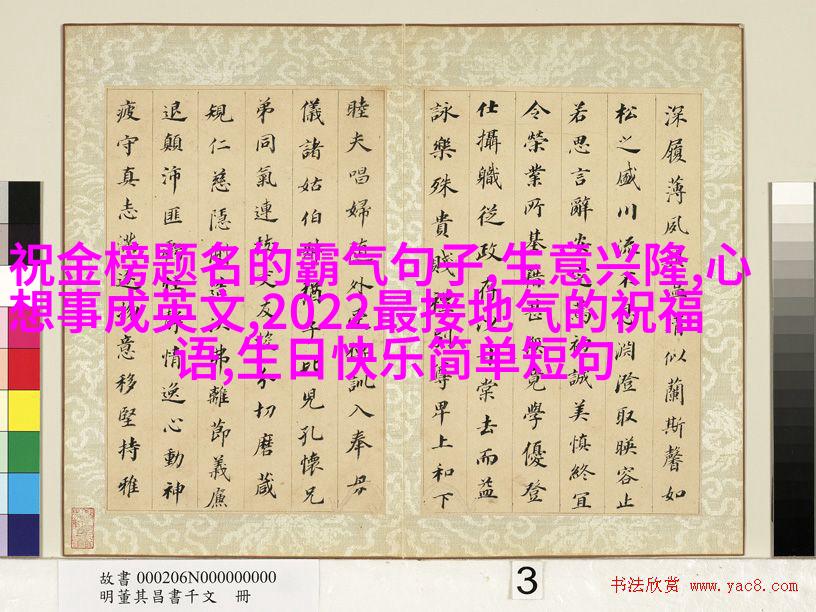 祝金榜题名的霸气句子,生意兴隆,心
想事成英文,2022最接地气的祝福
语,生日快乐简单短句
深履薄夙似蘭斯馨如
松之盛川流不息淵澄取暎容止
若思言辭安初誠美慎終宜
令榮業所基籍甚無竟學優登
仕攝職從政存以甘棠去而益
詠樂殊貴賤禮別尊卑上和下
睦夫唱婦隨外受傅訓入奉母
儀諸姑伯叔猶子比兒孔懷兄
弟同氣連枝交友投分切磨箴
規仁慈隱惻造次弗離節義廉
退顛沛匪虧性靜情逸心動神
疲守真志滿逐物意移堅持雅
故書 000206N000000000
明董其昌書千文 冊
3
书法欣赏 www.yac8.com